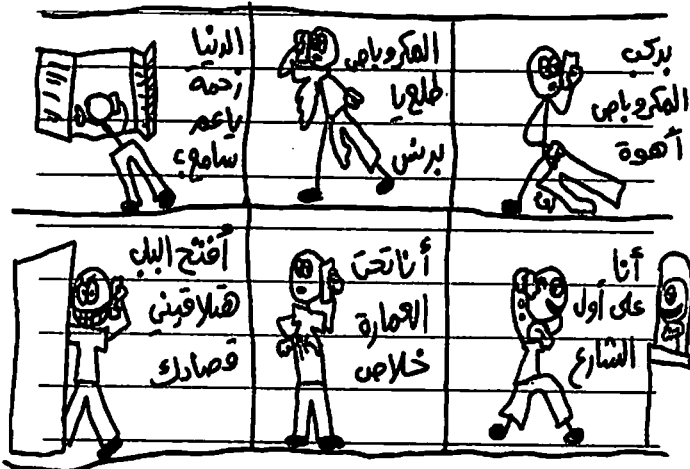 بركب
المكروباص
أهوة
المكروباص
طلع يا
برنس
الدنيا
زحمه
ياعم
سامع؟
أنا
على أول
الشارع
أنا تحت
العمارة
خلاص
أفتح الباب
هتلاقيني
قصادك